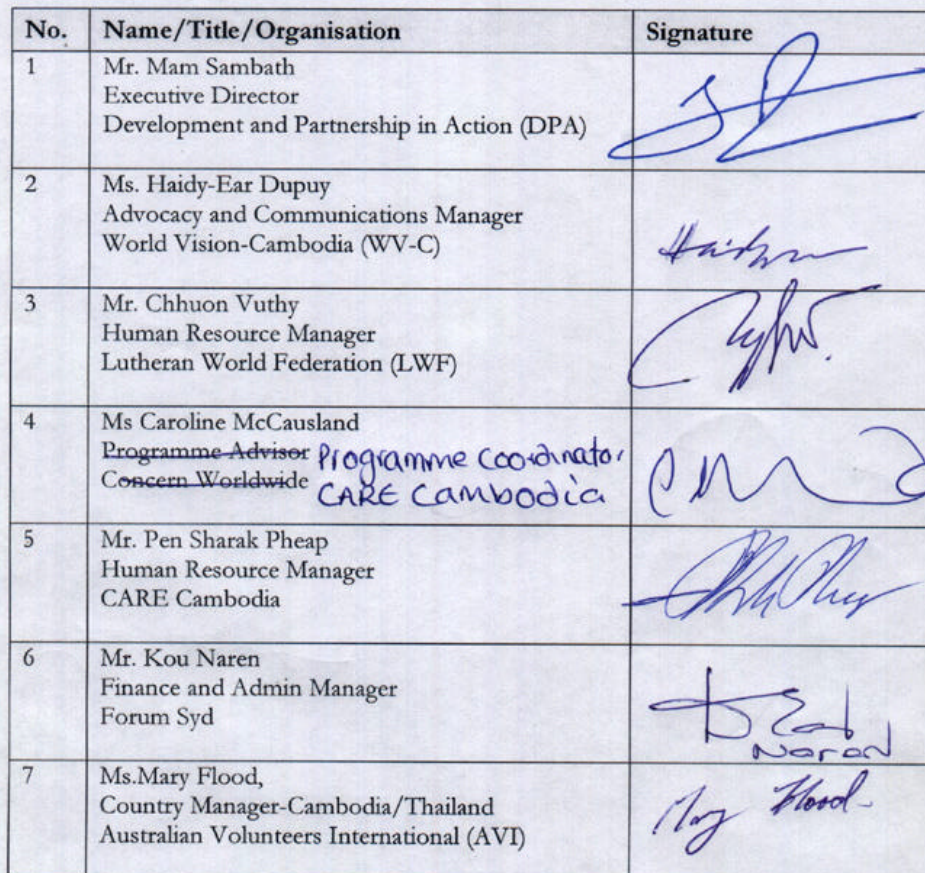 No. Name/Title/Organisation Signature
1 Mr. Mam Sambath
Executive Director
Development and Partnership in Action (DPA)
2 Ms. Haidy-Ear Dupuy
Advocacy and Communications Manager
World Vision-Cambodia (WV-C)
3 Mr. Chhuon Vuthy
Human Resource Manager
Lutheran World Federation (LWF)
4 Ms Caroline McCausland
Programme Advisor Programme Coordinator
Concern Worldwide CARE Cambodia
5 Mr. Pen Sharak Pheap
Human Resource Manager
CARE Cambodia
6 Mr. Kou Naren
Finance and Admin Manager
Forum Syd
Naren
7 Ms.Mary Flood,
Country Manager-Cambodia/Thailand
Mary Flood
Australian Volunteers International (AVI)